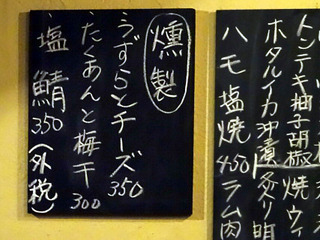 燻製
・うずらとチーズ350
・たくあんと梅干300
・塩鯖350(外税)
トンテキ柚子胡椒焼ウィ
ホタルイカ沖漬炙り明
ハモ塩焼450ラム肉